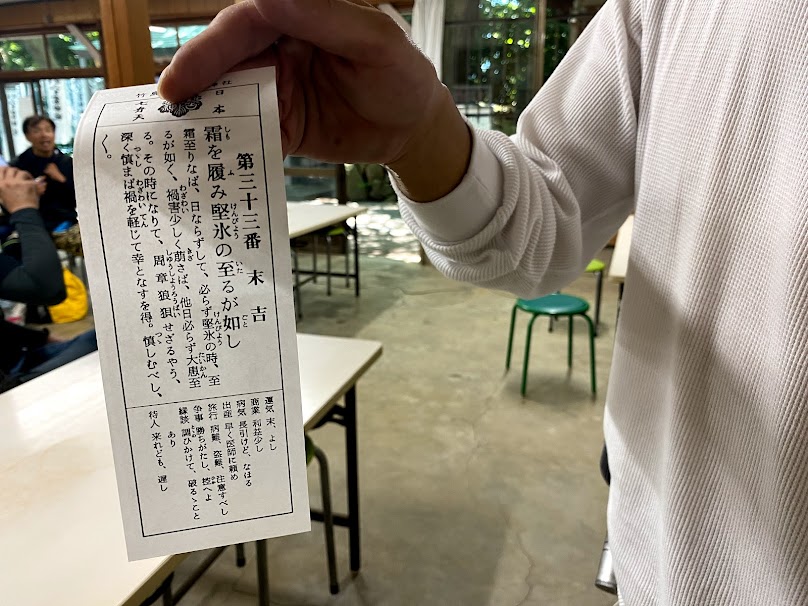 日本
七弁天
第三十三番 末吉
霜を履み堅氷の至るが如し
霜至りなば、日ならずして、必らず堅氷の時、至
るが如く、禍害少しく萠さば、他日必らず大患至
る。その時になりて、周章狼狽せざるやう、
深く慎まば禍を軽じて幸となすを得。慎しむべし、
〱。
運気 末、よし
商業 利益少し
病気 長引けど、なほる
出産 早く医師に頼め
旅行 病難、盗難、注意すべし
争事 勝ちがたし、控へよ
縁談 調ひかけて、破るゝこと
あり
待人 来れども、遅し